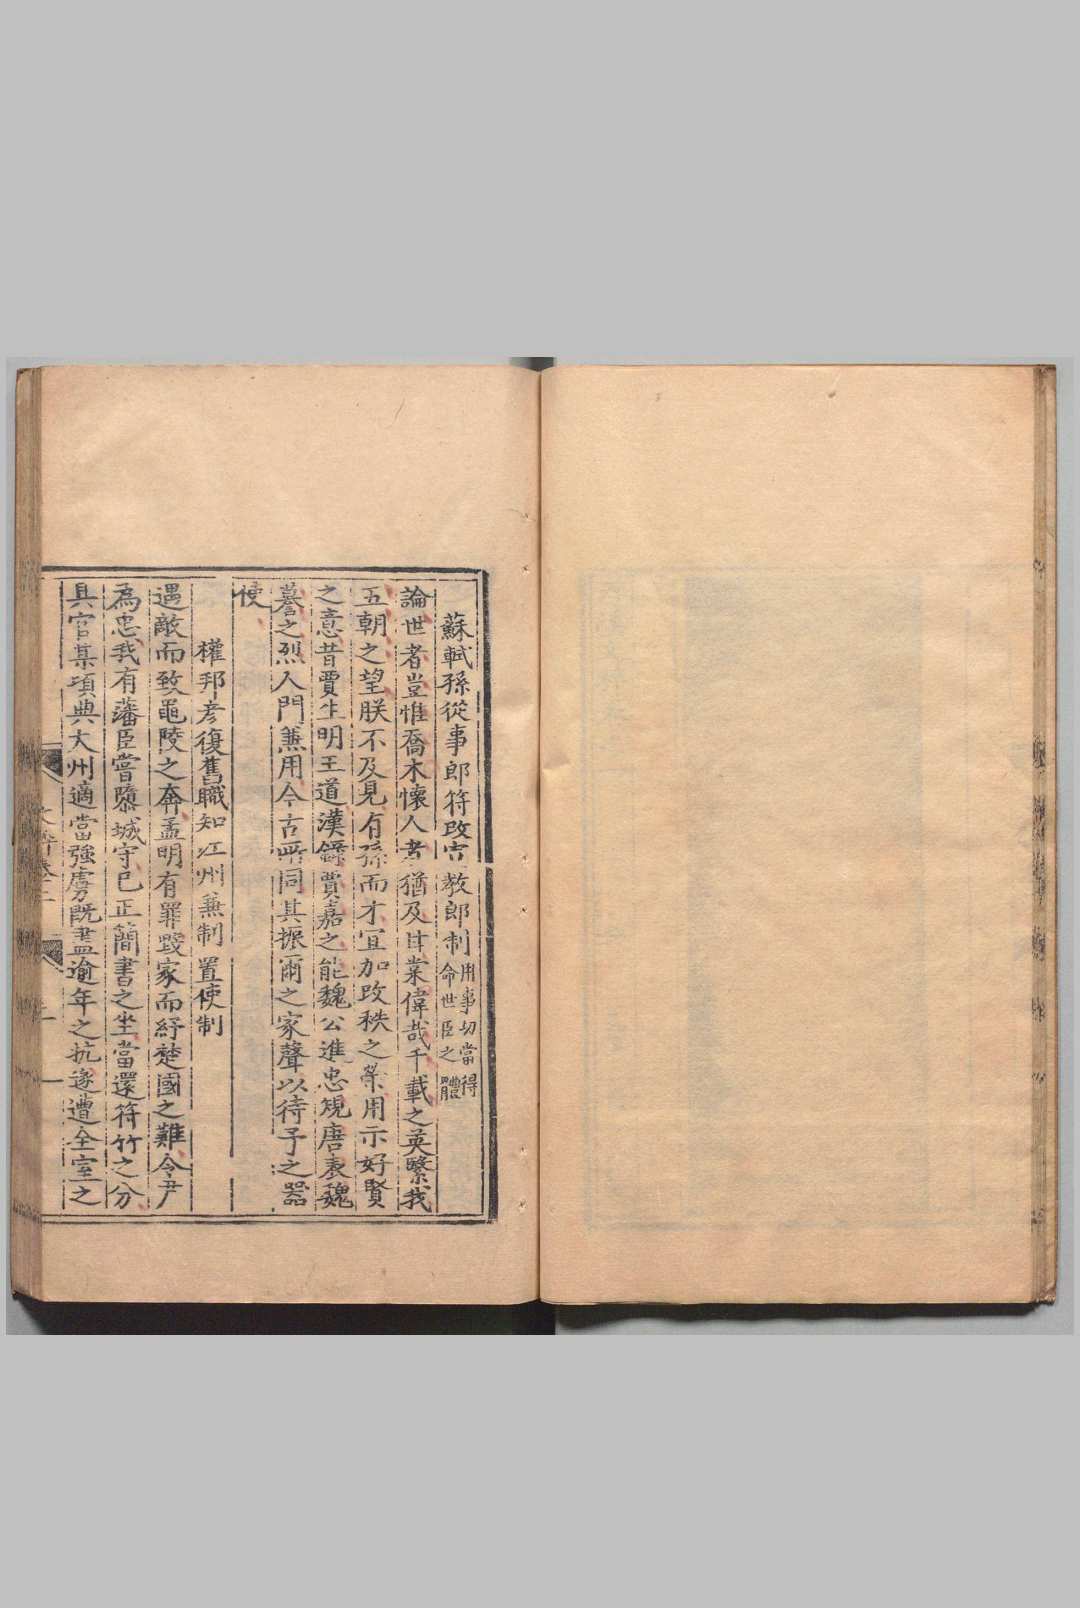 蘇軾孫從事郎符改宣教郎制用事切當得命世臣之體
論世者豈惟喬木懷人者猶及甘棠偉哉千載之英繄我
五朝之望朕不及見有孫而才宜加改秩之榮用示好賢
之意昔賈生明王道漢錄賈嘉之能魏公進忠規唐表魏
謩之烈人門兼用今古所同其振爾之家聲以待予之器
使
權邦彥復舊職知江州兼制置使制
遇敵而致黽陵之奔孟明有罪毀家而紓楚國之難令尹
為忠我有藩臣嘗隳城守已正簡書之坐當還符竹之分
具官某頃典大州適當強虜既盡逾年之抗遂遭全室之